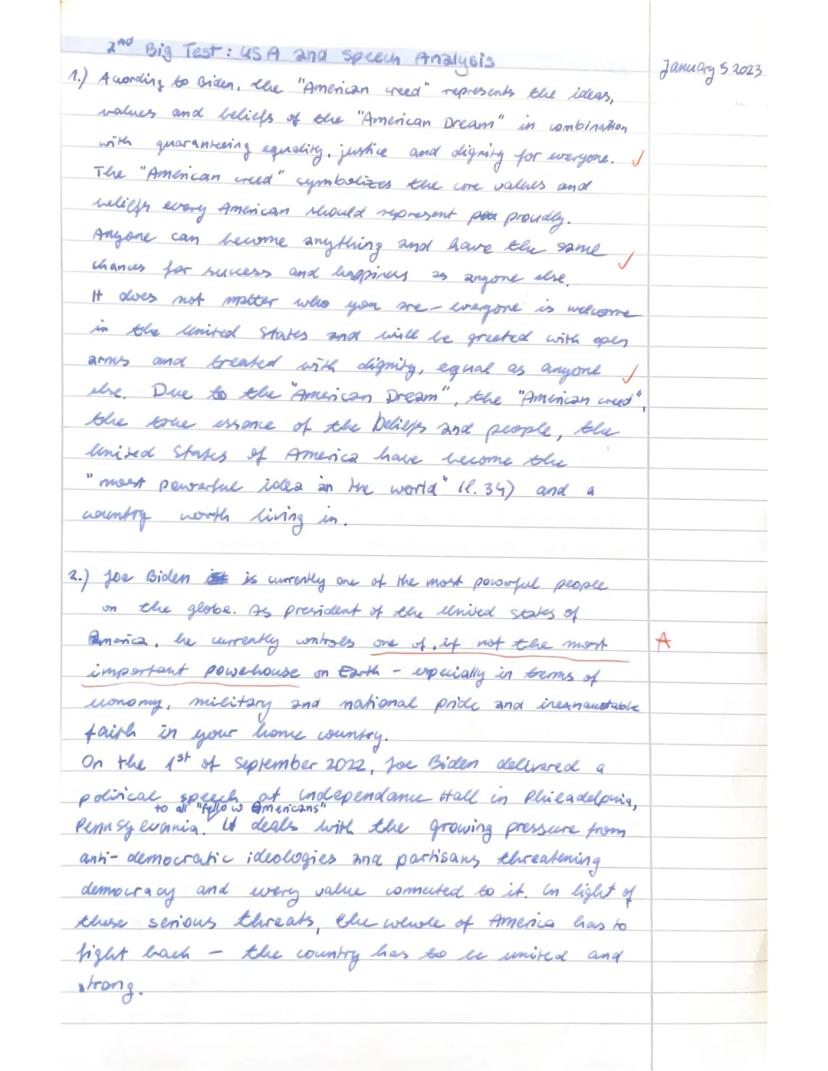 2nd Big Test: USA and Speech Analysis
January 5 2023
1.) Acording to Biden, the "American creed" represents the ideas,
values and beliefs of the "American Dream" in combination
with guaranteeing equality, justice and dignity for everyone. ✓
The "American creed" symbolizes the core values and
beliefs every American should represent proudly.
Anyone can become anything and have the same ✓
chances for success and happiness as anyone else.
It does not matter who you are - everyone is welcome
in the United States and will be greeted with open
arms and treated with dignity, equal as anyone ✓
else. Due to the "American Dream", the "American creed",
the true essance of the beliefs and people, the
United States of America have become the
"most powerful idea in the world" (l. 34) and a
country worth living in.
2.) Joe Biden is currently one of the most powerful people
on the globe. As president of the United States of
America, he currently controls one of, if not the most A
important powerhouse on Earth - especially in terms of
economy, military and national pride and inexhaustable
faith in your home country.
On the 1st of September 2022, Joe Biden delivered a
political speech at Independance Hall in Philadelphia,
to all "fellow Americans"
Pennsylvania. It deals with the growing pressure from
anti-democratic ideologies and partisans threatening
democracy and every value connected to it. In light of
these serious threats, the whole of America has to
fight back - the country has to be united and
strong.